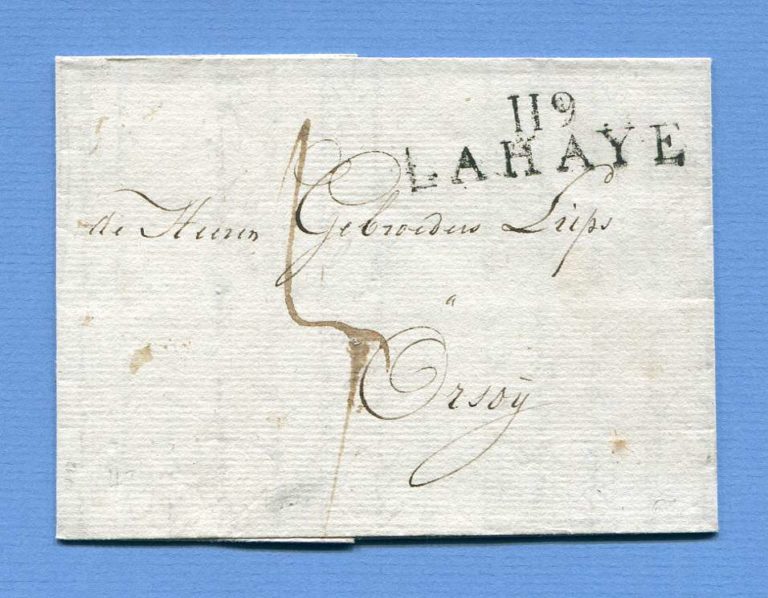 119
LAHAYE
de Heeren Gebroeders Lups
a
Orsoÿ